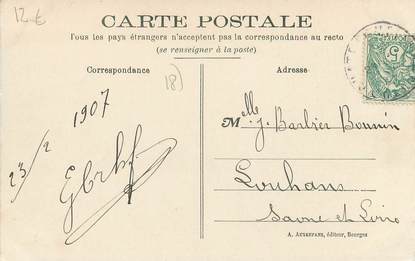 12-€
CARTE POSTALE
Tous les pays étrangers n'acceptent pas la correspondance au recto
(se renseigner à la poste)
Correspondance
Adresse
18)
23/2 1907
Melle J. Barbier Bounin
Louhans
Saone et Loire
A. Auxenfans, éditeur, Bourges